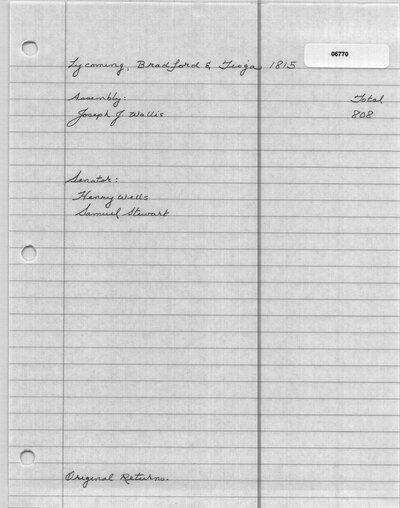 06770
Lycoming, Bradford & Tioga 1815
Assembly: Total
Joseph J. Wallis 808
Senator:
Henry Wells
Samuel Stewart
Original Returns.